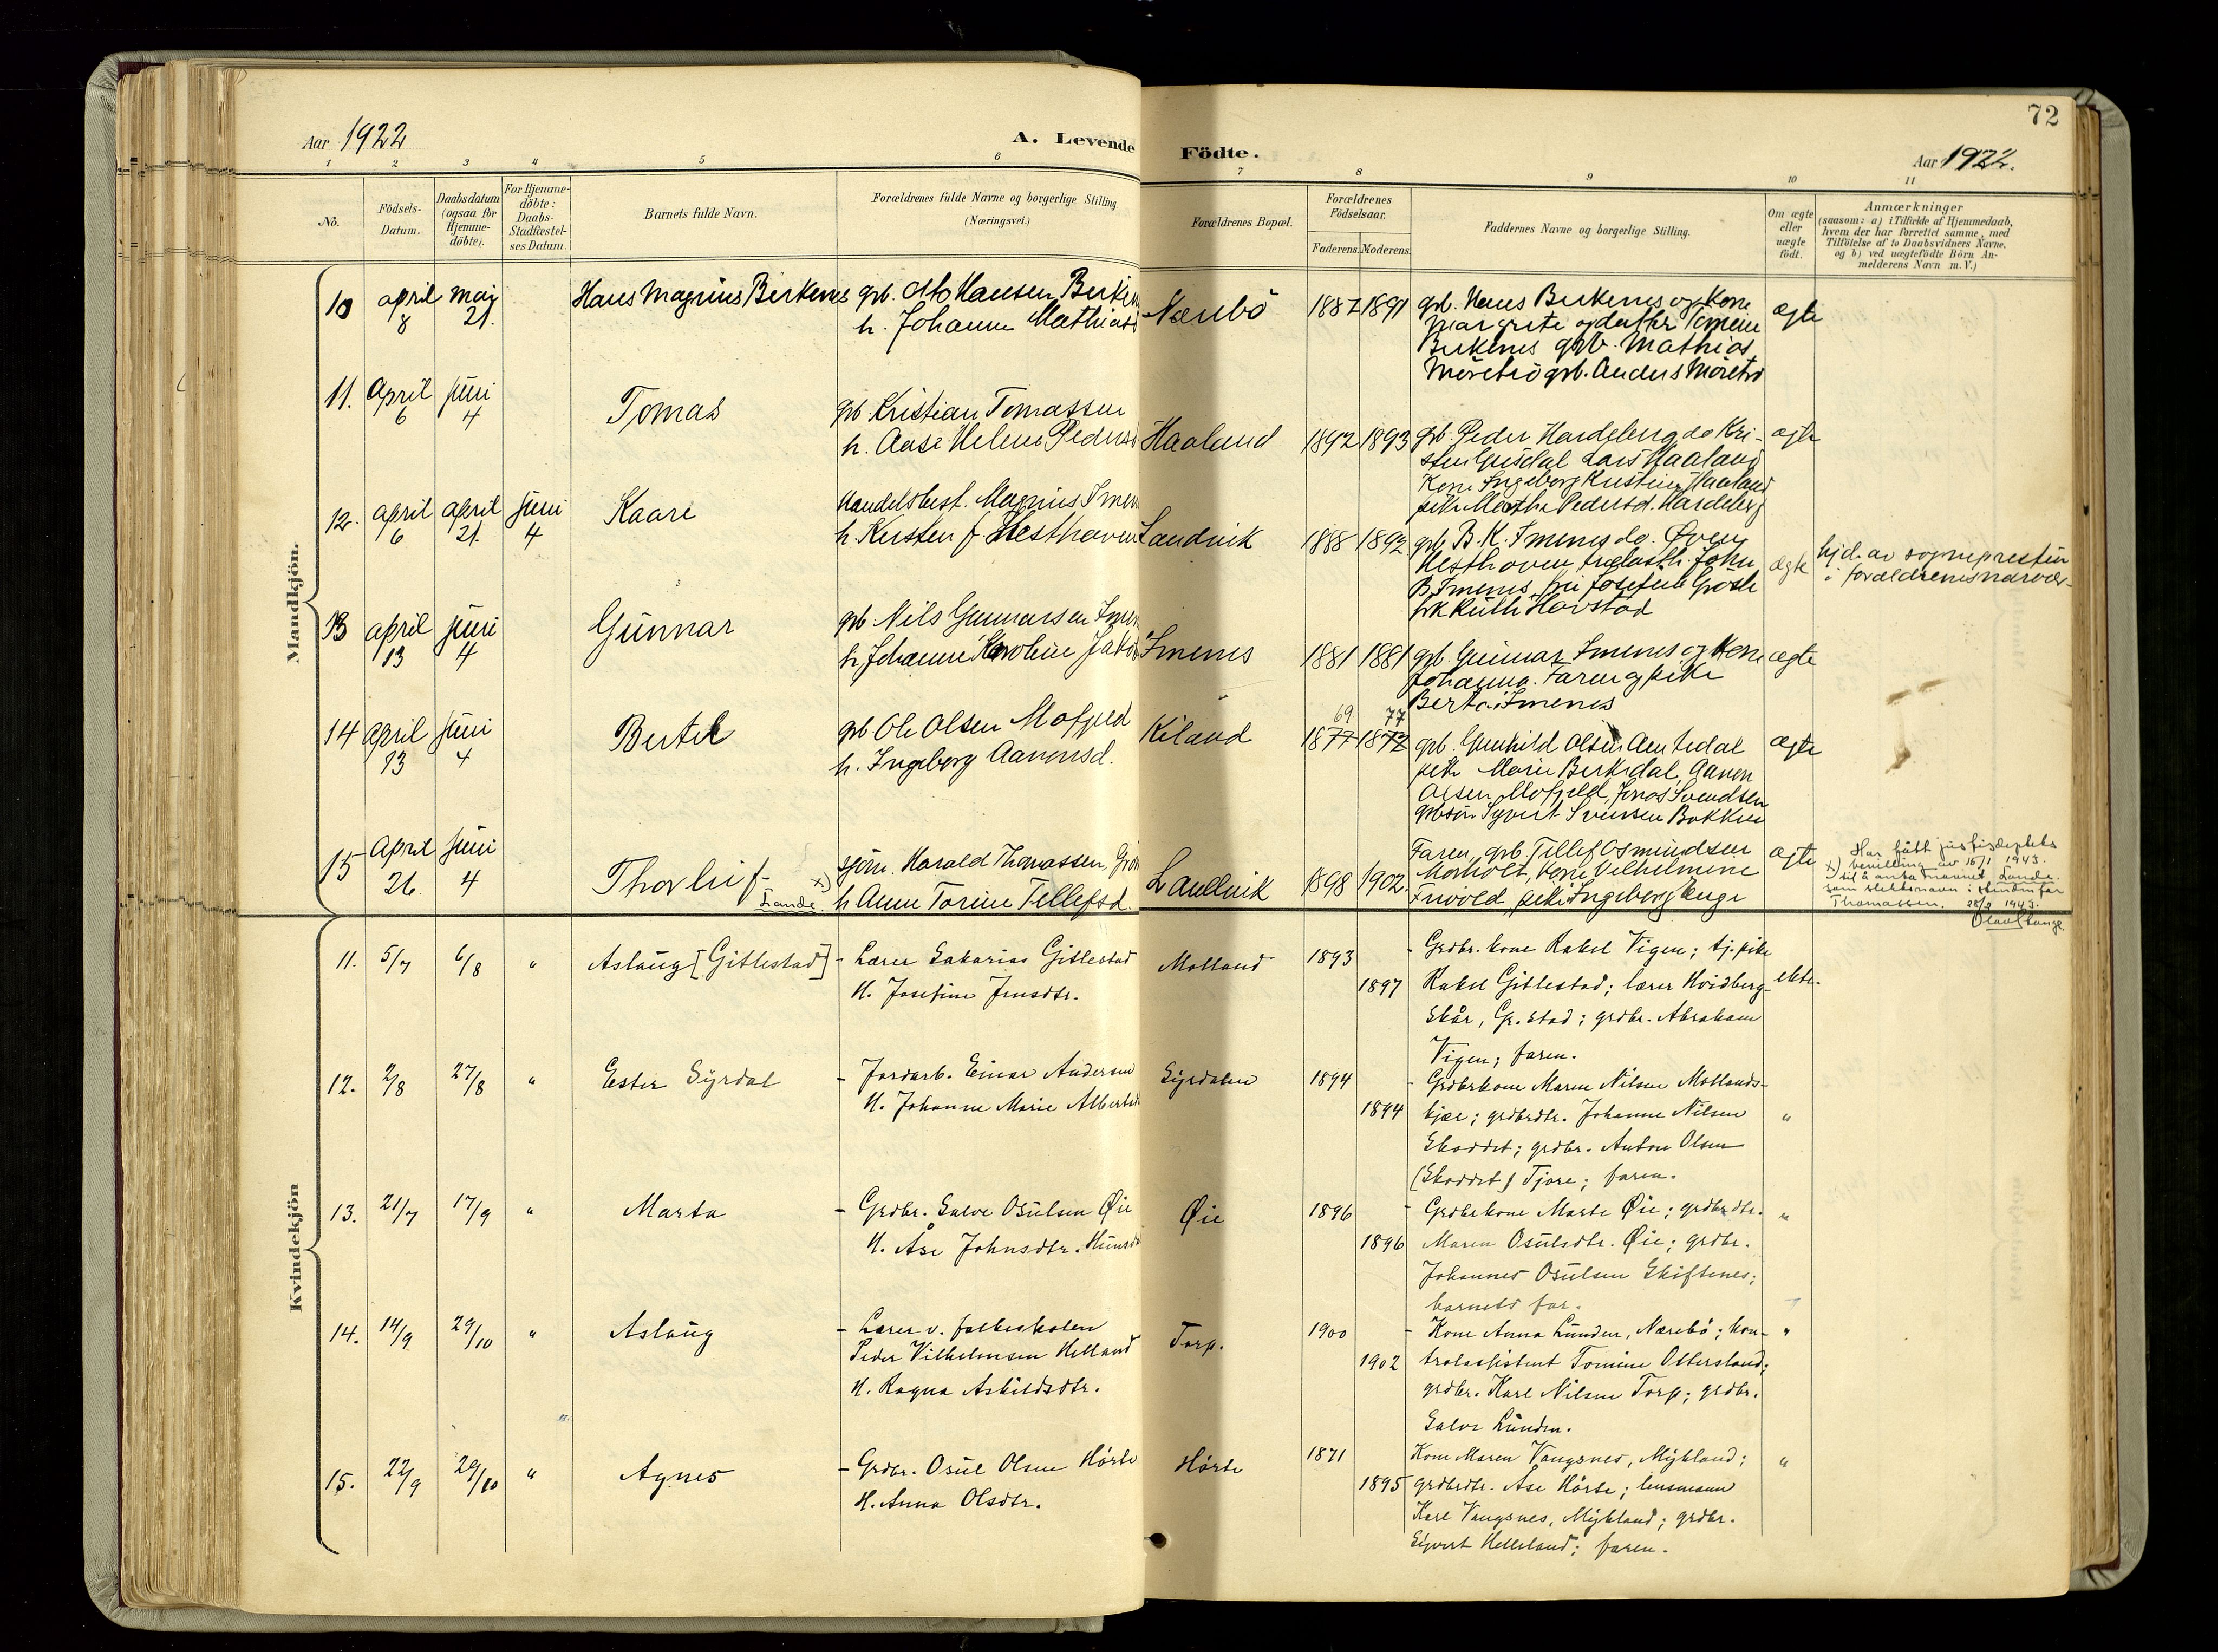 72
Aar 1922
A. Levende Födte.
Aar 1922.
1 2 3 4 5 6 7 8 9 10 11
No.
Födsels-Datum.
Daabsdatum (ogsaa for Hjemme-döbte).
For Hjemme-döbte: Daabs-Stadfæstel-ses Datum.
Barnets fulde Navn.
Forældrenes fulde Navne og borgerlige Stilling.
(Næringsvei.)
Forældrenes Bopæl.
Forældrenes Födselsaar.
Faderens. Moderens.
Faddernes Navne og borgerlige Stilling.
Om ægte eller uægte födt.
Anmærkninger
(saasom: a) i Tilfælde af Hjemmedaab,
hvem der har forrettet samme, med
Tilföielse af to Daabsvidners Navne,
og b) ved uægtefödte Börn An-
melderens Navn m. V.)
Mandkjön.
10 april 8 mai 21. Hans Magnus Birkenes
grb. Otto Hansen
h. Johanne Mathias
Nærebö 1882 1891
grb. Hans Birkenes og Kone
Margrete og datter
Birkenes grb. Mathias
Möretrö grb. Anders Möretrö
ægte
11. april 6 juni 4 Tomas
grb Kristian Tomassen
h. Aase Helene Peders
Haaland 1892 1893
grb. Peder Hardeberg do Kri-
sten Lars Haaland
Kone Ingeborg Kristine Haaland
pike Pedersd. Hardeberg
ægte
12. april 6 april 21. juni 4 Kaare
Handelsbest. Magnus
h. Kirsten f. Hesthaven
Landvik 1888 1892
grb B. K. Imenes do.
Hesthaven John
B. Imenes, fru Josefine
frk Ruth Havstad
ægte
hjd. av sognepresten
i forældrenes nærvær.
13 april 13 juni 4 Gunnar
grb Nils Gunnarsen
h. Johanne Karoline
Imenes 1881 1881
grb. Gunnar Imenes og Kone
Johanna. Faren og pike
Berta Imenes
ægte
14 april 13 juni 4 Bertel
grb Ole Olsen Mofjeld
h. Ingeborg Aanonsd.
Kiland 69 77
1877 1872
grb. Olsen
pike Marie Birkedal, Aanon
Olsen Mofjeld, Jonas Svendsen
grbsön Syvert Svensen
ægte
15 april 26 juni 4 Thorleif x)
Lande.
sjöm. Harald Thomassen,
h Anne Torine Tellefsd.
Landvik 1898 1902.
Faren, grb. Tellef Osmundsen
Morholt, Kone Vilhelmine
pike Ingeborg
ægte
Har fått justisdeptets
x) bevilling av 15/1 1943.
til å anta navnet Lande.
som slektsnavn i stedenfor
Thomassen. 28/2 1943.
Kvindekjön
11. 5/7 6/8 " Aslaug [Gitlestad]
- Lærer Sakarias Gitlestad
H. Josefine Jensdtr.
Molland 1893
1897
- Grdbr. kone Rakel Vigen; tj. pike
Rakel Gitlestad; lærer Hvidberg
Skår, Gr.stad; grdbr. Abraham
Vigen; faren.
ekte.
12. 2/8 27/8 " Ester Syrdal
- Jordarb. Einar Andersen
H. Johanne Marie Albertsd
Syrdalen 1894
1894
- Grdbrkone Maren Nilsen Mollands-
kjær; grdbrdtr. Johanne Nilsen
Skoddet; grdbr. Anton Olsen
(Skoddet) Tjore; faren.
"
13. 21/7 17/9 " Marta
- Grdbr. Salve Osulsen Øie
H. Åse Johnsdtr.
Øie 1896
1896
- Grdbrkone Marte Øie; grdbrdtr.
Maren Osulsdtr. Øie; grdbr.
Johannes Osulsen Skiftenes;
barnets far.
"
14. 14/9 29/10 " Aslaug
- Lærer v. folkeskolen
Peder Vilhelmsen Helland
H. Ragna Askildsdtr.
Torp. 1900
1902
- Kone Anna Lunden, Nærebö; kon-
trolassistent Tomine Ottersland;
grdbr. Karl Nilsen Torp; grdbr.
Salve Lunden.
"
15. 22/9 29/10 " Agnes
- Grdbr. Osul Olsen Hörte
H. Anna Olsdtr.
Hörte 1871
1895
Kone Maren Vangsnes, Mykland;
grdbrdtr. Åse Hörte; lensmann
Karl Vangsnes, Mykland; grdbr.
Sigvert Helleland; faren.
"